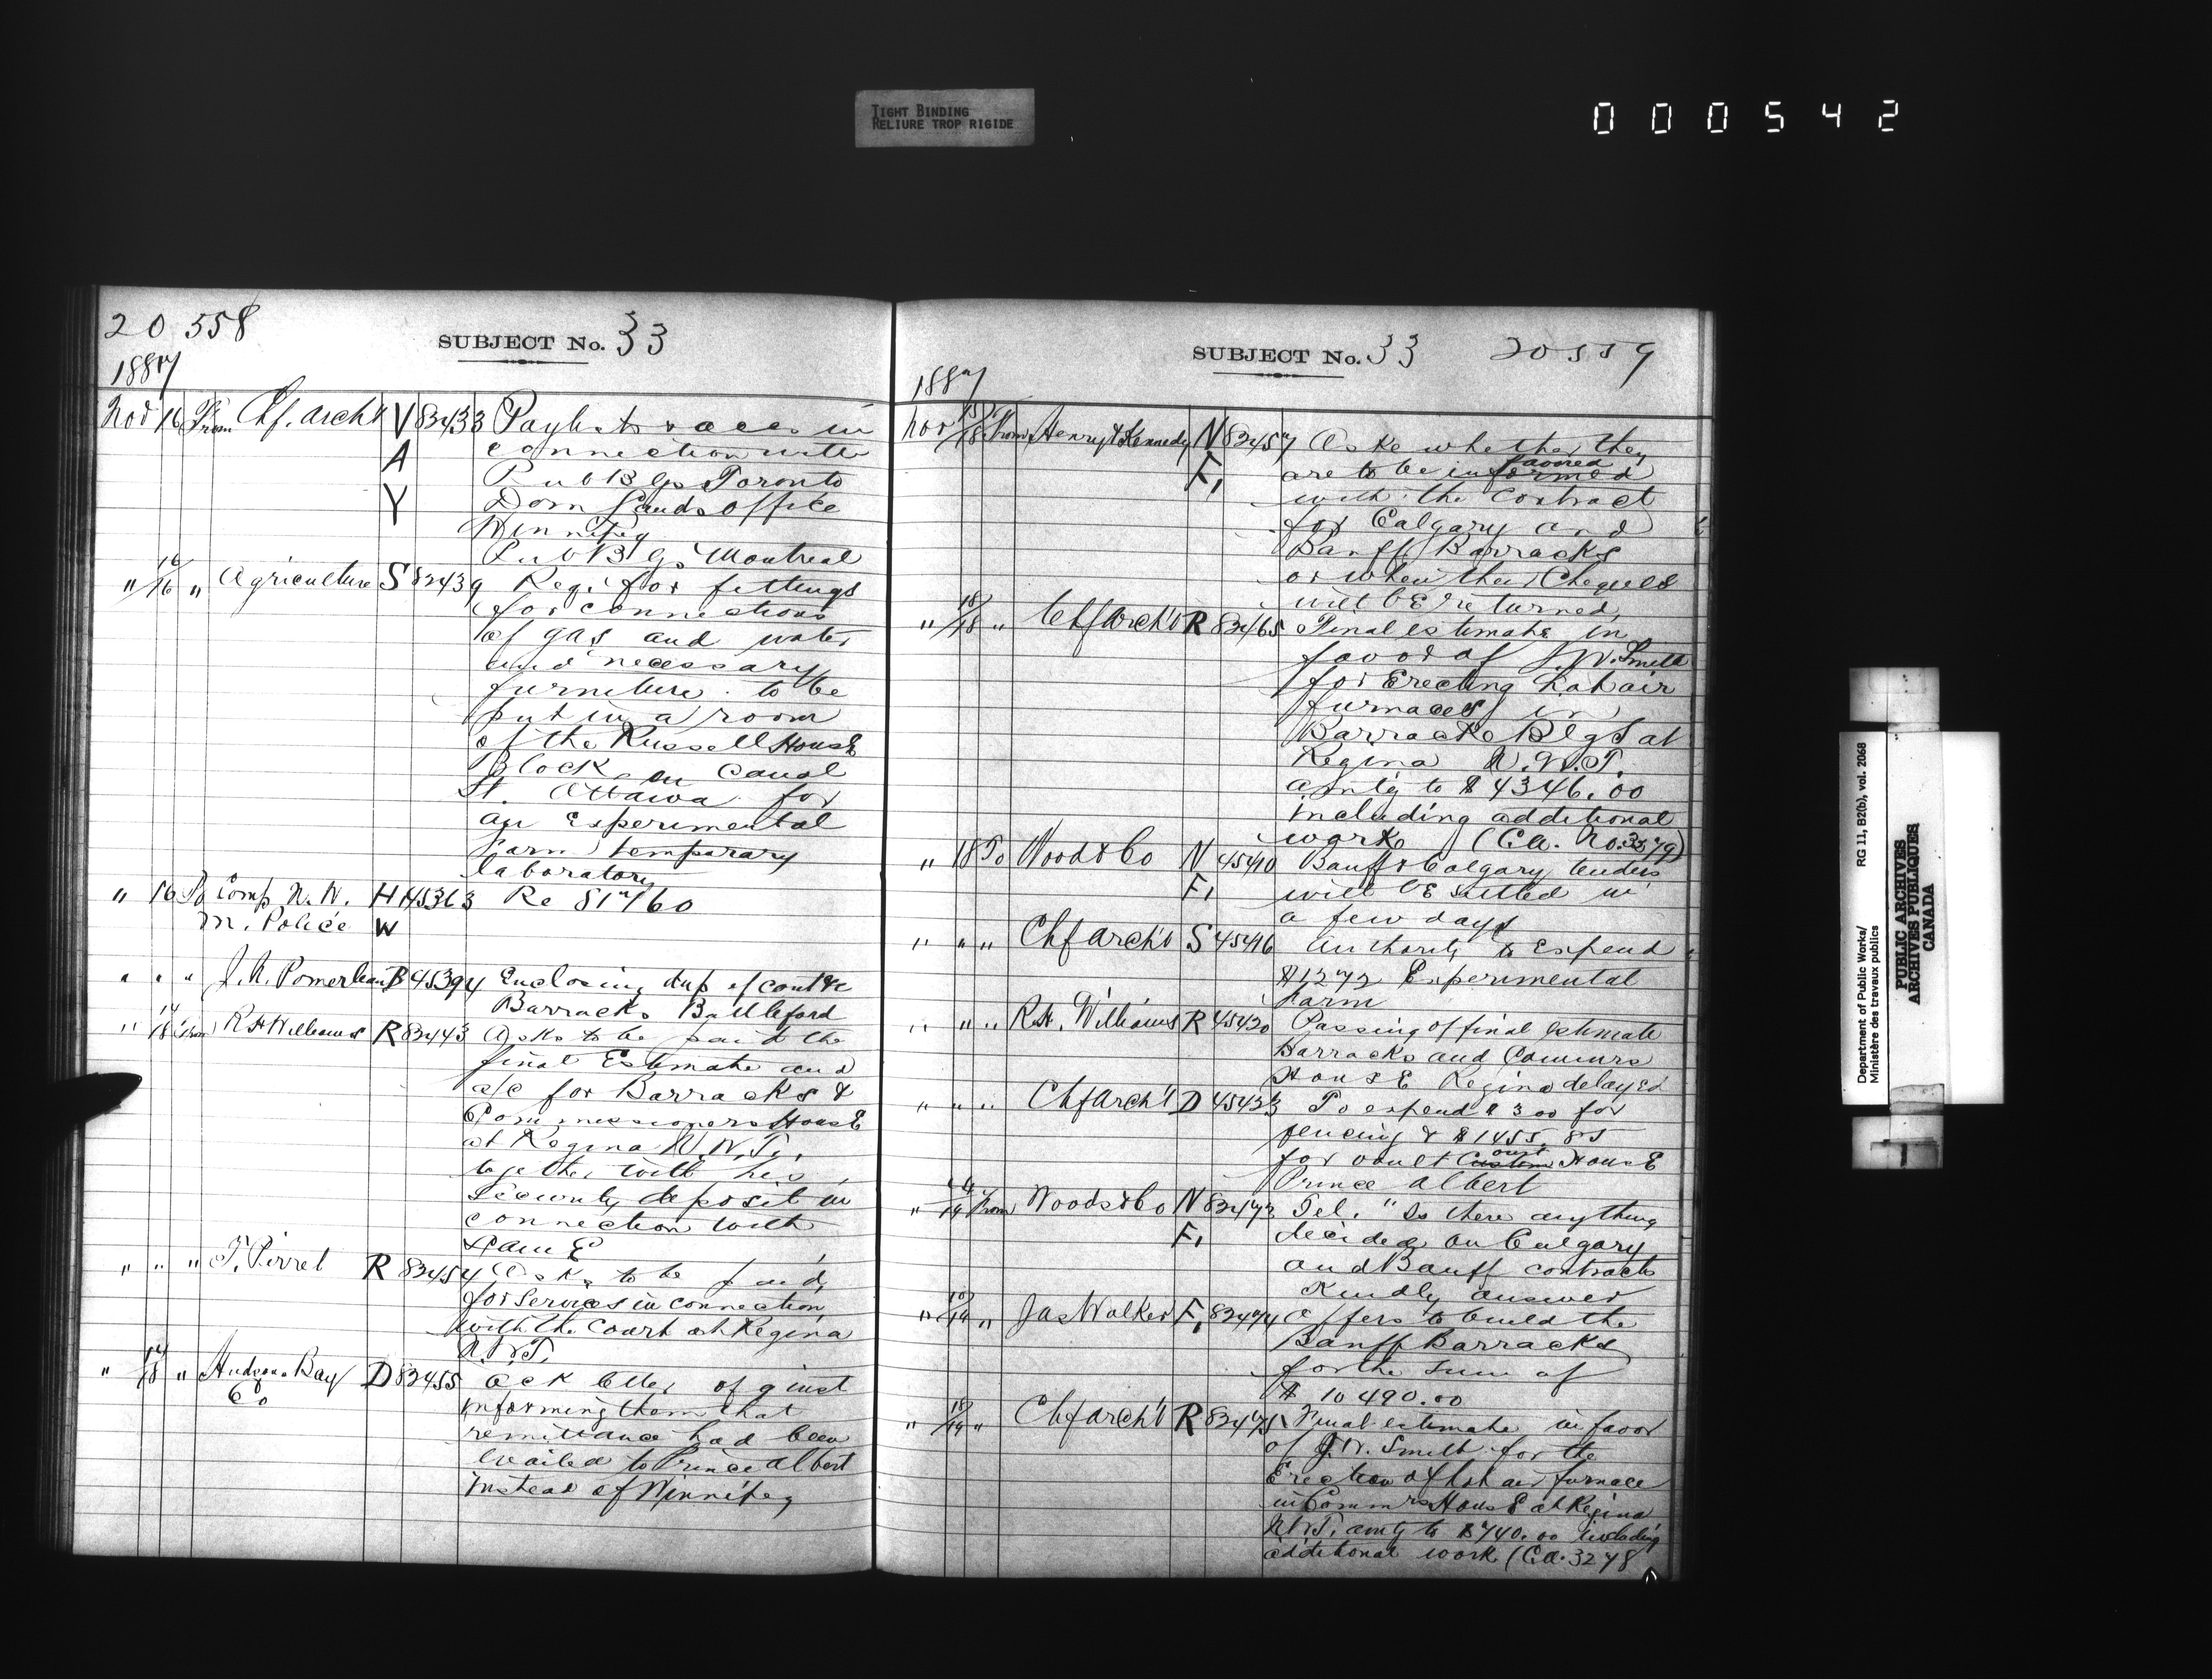 TIGHT BINDING
RELIURE TROP RIGIDE
000542
20 558
SUBJECT No. 33
1887
Nov 16 From Chf. Archt V 82433 Paylists & accs in
A connection with
Pub Blgs Toronto
Y Dom Lands office
Winnipeg
Pub Blgs Montreal
" 16/16 " Agriculture S 82439 Reqs for fittings
for connections
of gas and water
and necessary
furniture to be
put in a room
of the Russell House
Block on Canal
St. Ottawa for
an Experimental
Farm temporary
laboratory
" 16 To Comp N. W. H 45363 Re 81760
M. Police W
" " " J. A. Pomerleau B 45394 Enclosing dup of contr
Barracks Battleford
" 14/18 From R H Williams R 82443 Asks to be paid the
final Estimate and
a/c for Barracks &
Commissioners House
at Regina N.W.T.,
together with his
security deposit in
connection with
same
" " " T. Pirret R 82454 Asks to be paid
for services in connection
with the Court at Regina
N.W.T.
" 18 " Hudsons Bay D 82455 Ack letter of 9 inst
Co informing them that
remittance had been
mailed to Prince Albert
instead of Winnipeg
SUBJECT No. 33 20559
1887
Nov 15/18 From Henry & Kennedy N 82457 Asks whether they
favored
F, are to be informed
with the contract
for Calgary and
Banff Barracks
or when their Cheques
will be returned
" 18/18 " Chf Archt R 82465 Final estimate in
favor of J. W. Smith
for Erecting hot air
furnaces in
Barracks Blgs at
Regina N.W.T.
amtg to $4346.00
including additional
work (Ca. No. 3279)
" 18 To Wood & Co N 45410 Banff & Calgary tenders
F, will be settled in
a few days
" " " Chf Archt S 45416 Authority to Expend
$1272 Experimental
Farm
" " " R.H. Williams R 45420 Passing of final estimate
Barracks and Commrs
House Regina delayed
" " " Chf Archt D 45423 To expend $300 for
fencing & $1455.85
court
for vault Custom House
Prince Albert
" 19 From Woods & Co N 82472 Tel. "Is there anything
F, decided on Calgary
and Banff contracts
Kindly answer
" 19 " Jas Walker F, 82474 Offers to build the
Banff Barracks
for the sum of
$10490.00
" 18/19 " Chf Archt R 82475 Final estimate in favor
of J. W. Smith for the
Erection of hot air furnace
in Commrs House at Regina
N.W.T. amtg to $740.00 including
additional work (Ca. 3278
Department of Public Works/ RG 11, B2(b), vol. 2068
Ministère des travaux publics
PUBLIC ARCHIVES
ARCHIVES PUBLIQUES
CANADA